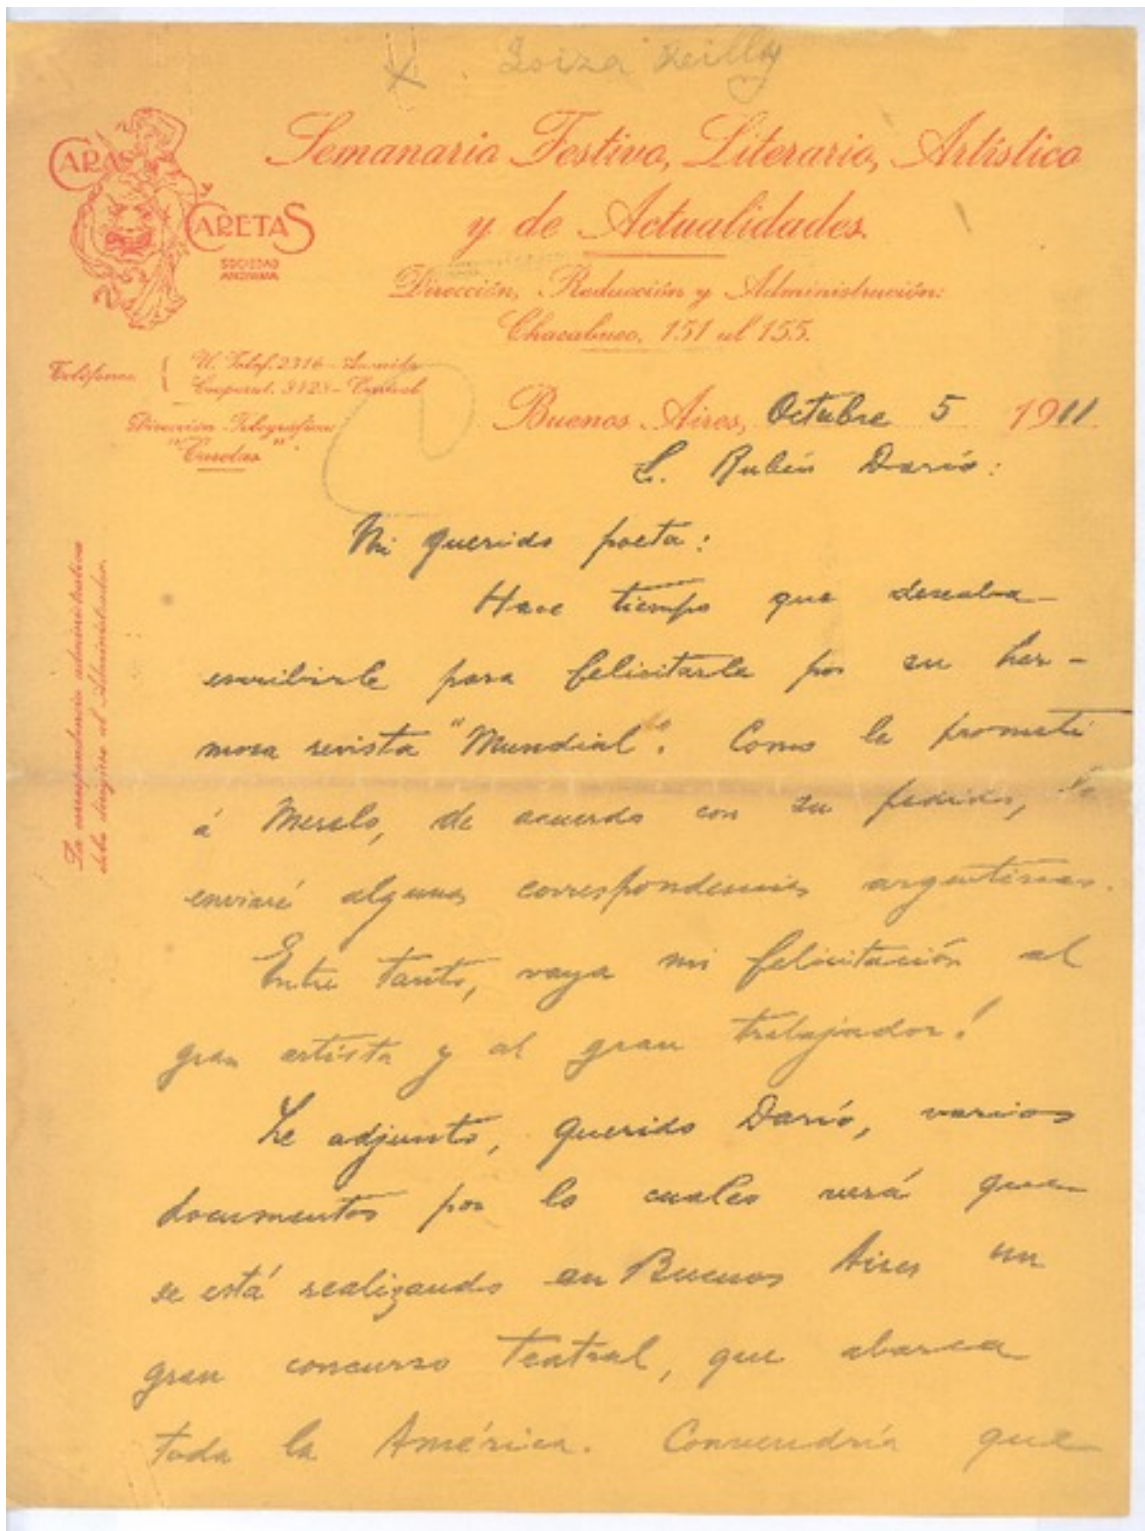 X. Soiza Reilly
CARAS
y
CARETAS
SOCIEDAD
ANONIMA
Semanario Festivo, Literario, Artístico
y de Actualidades.
Dirección, Redacción y Administración:
Chacabuco, 151 al 155.
Teléfonos
U. Telef. 2316 - Avenida
Cooperat. 3423 - Central
Dirección Telegráfica:
"Caretas".
Buenos Aires, Octubre 5 1911
S. Rubén Darío:
Mi querido poeta:
Hace tiempo que deseaba
escribirle para felicitarle por su her-
mosa revista "Mundial". Como le prometí
á Merelo, de acuerdo con su pedido, le
enviaré algunas correspondencias argentinas.
Entre tanto, vaya mi felicitación al
gran artista y al gran trabajador!
Le adjunto, querido Darío, varios
documentos por lo cuales verá que
se está realizando en Buenos Aires un
gran concurso teatral, que abarca
toda la América. Convendría que
La correspondencia administrativa
debe dirigirse al Administrador.